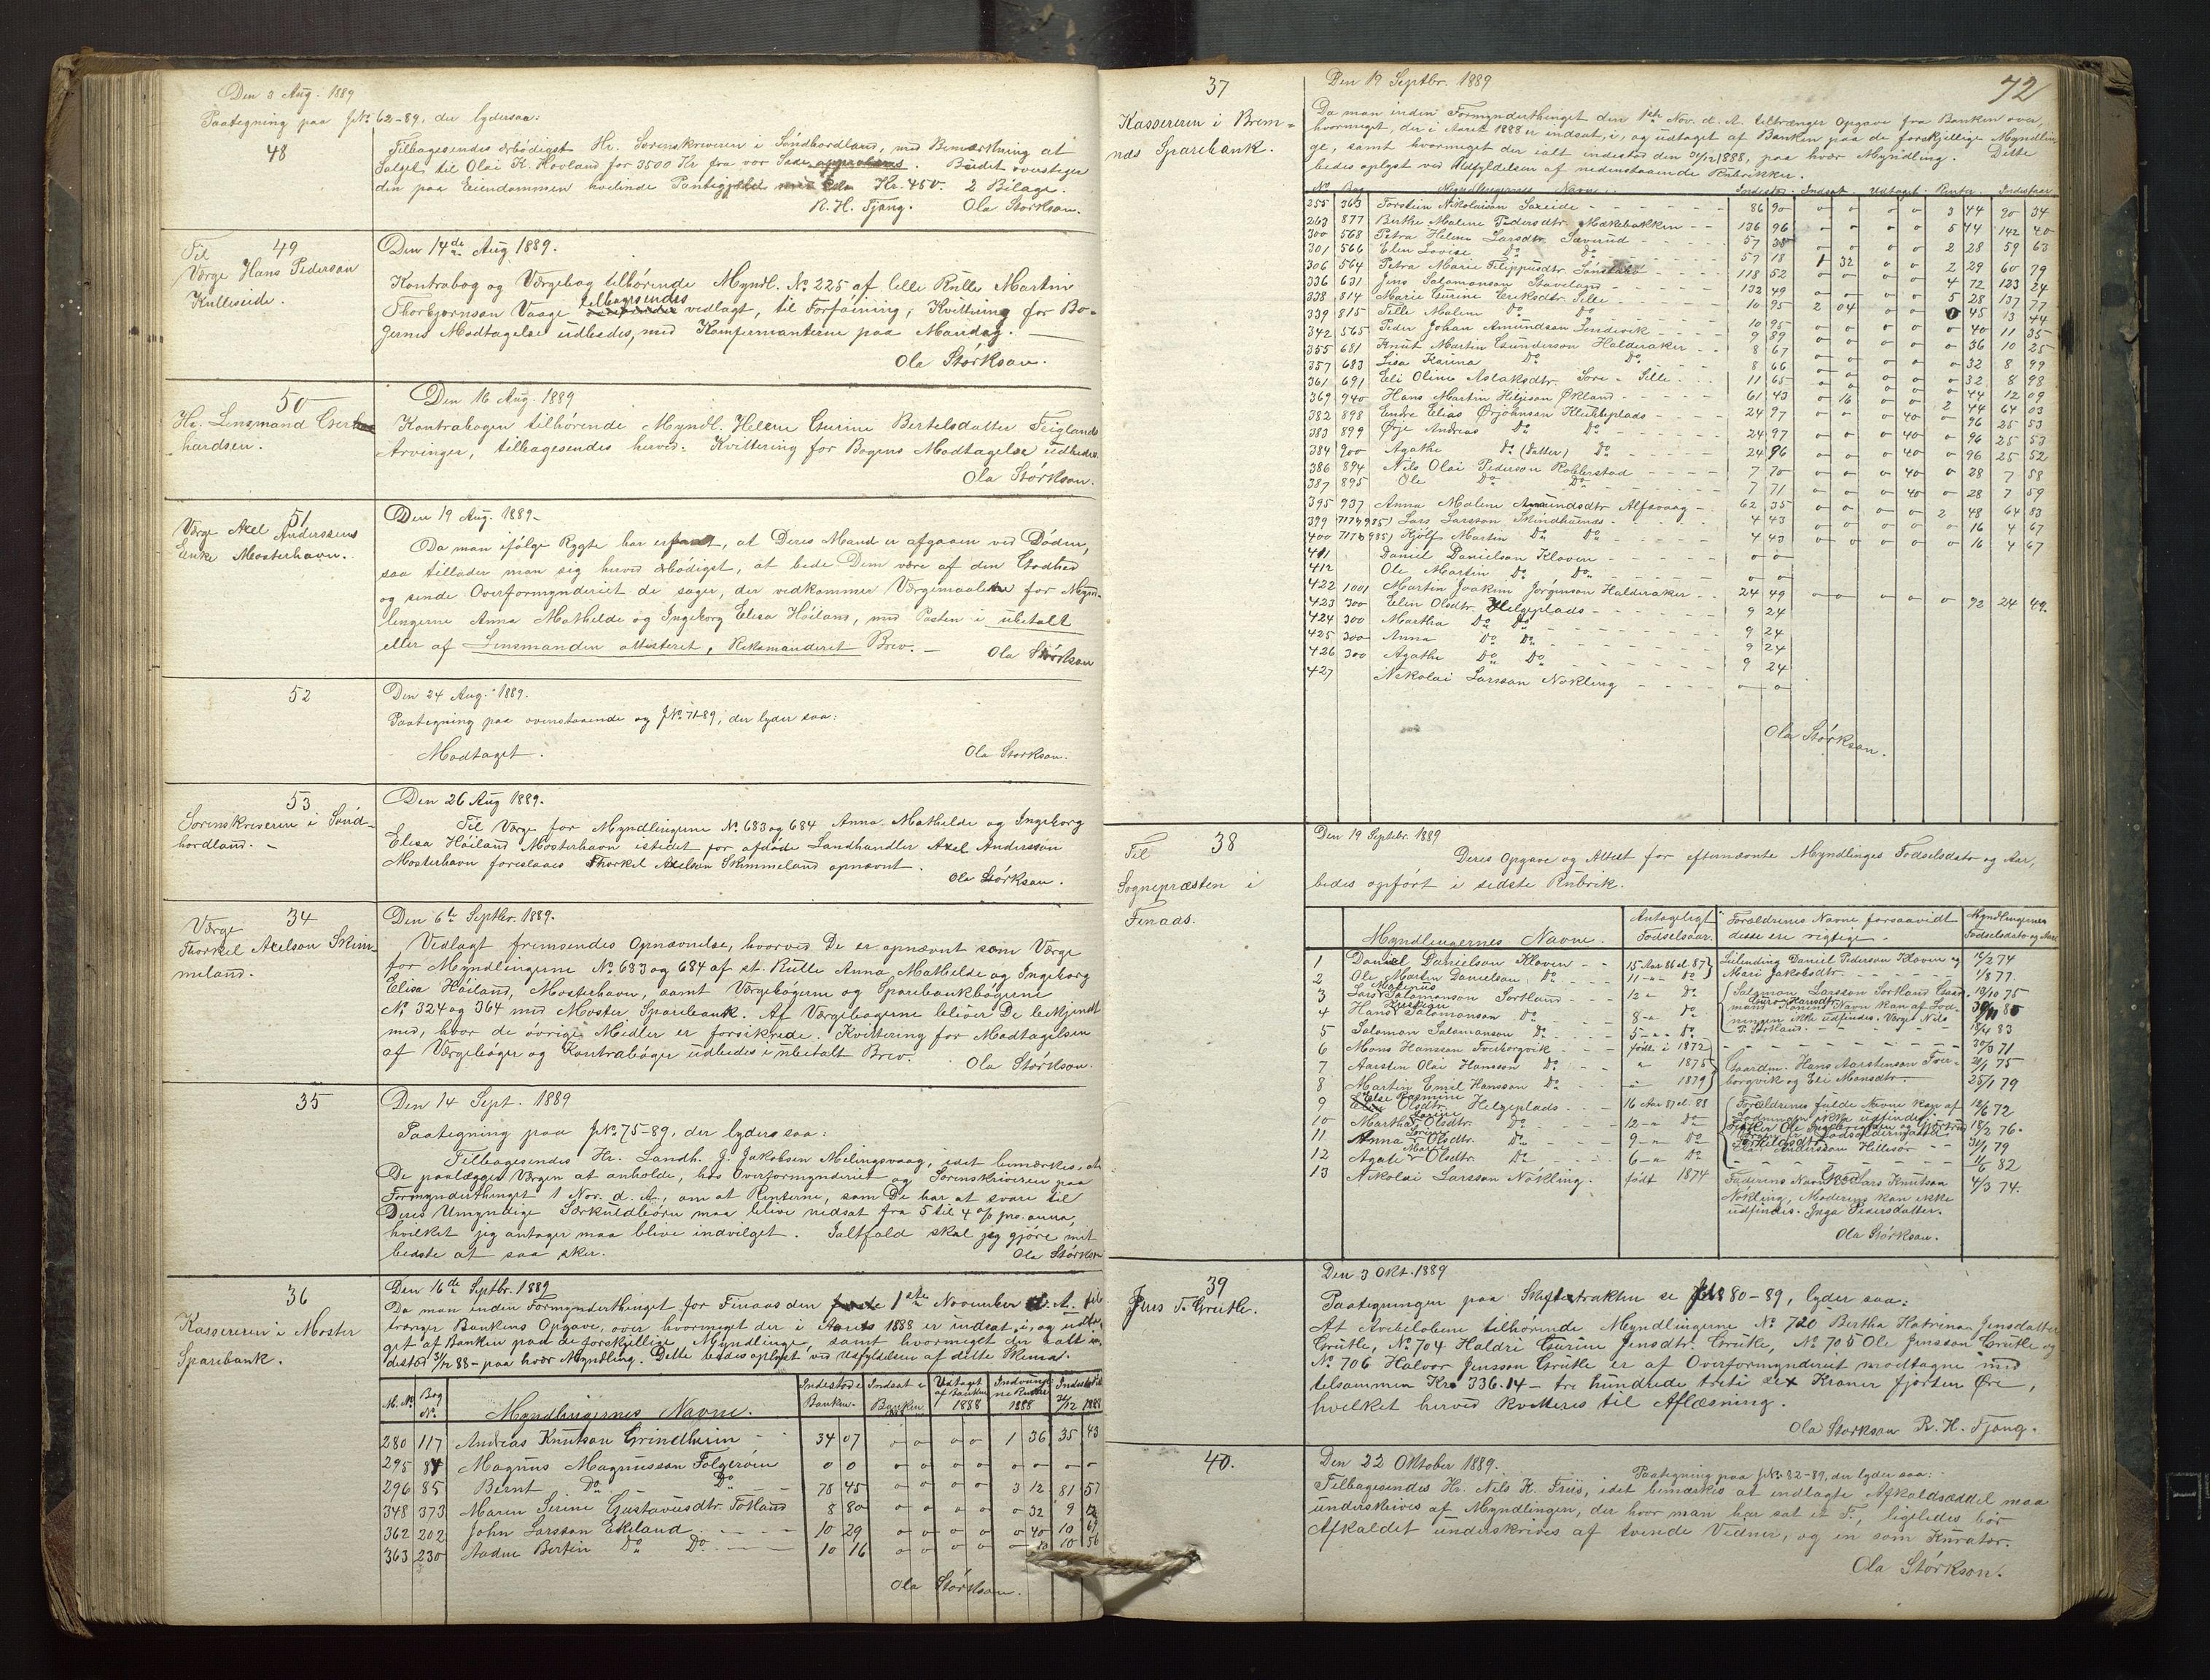 Den 3 Aug. 1889
Paategning paa JNo. 62-89, der lyder saa:
48
Tilbagesendes ærbødigst Hr. Sorenskriveren i Söndhordland, med Bemærkning at
Salget til Olai K. Hovland for 3500 Kr fra vor Side approberes. Budet overstiger
den paa Eiendommen hvilende Pantegjæld med Kr. 450. 2 Bilage.
R. H. Tjong. Ola Störkson.
Til 49
Værge Hans Pederson
Kulleseide.
Den 14de Aug 1889.
Kontrabog og Værgebog tilhörende Myndl. No 225 af lille Rulle Martin
Thorbjornson Vaage tilbagesendes vedlagt, til Forföining; Kvittering for Bö-
gernes Modtagelse udbedes, med Komfermanterne paa Mandag.
Ola Störkson.
50
Hr. Lensmand
hardsen.
Den 16 Aug. 1889
Kontrabogen tilhörende Myndl. Helene Gurine Bertelsdatter Teiglands
Arvinger, tilbagesendes herved. Kvittering for Bogens Modtagelse udbedes.
Ola Störkson.
51
Værge Axel Anderssens
Enke Mosterhavn.
Den 19 Aug. 1889.
Da man ifölge Rygte har erfaret, at Deres Mand er afgaaen ved Döden,
saa tillader man sig herved ærbödigst, at bede Dem være af den Godhed
og sende Overformynderiet de sager, der vedkommer Værgemaalene for Mynd-
lingerne Anna Mathilde og Ingeborg Elisa Höiland, med Posten i ubetalt
eller af Lensmanden attesteret, Rekomanderet Brev. Ola Störkson
52
Den 24 Aug. 1889.
Paategning paa ovenstaaende og JNo. 71-89, der lyder saa:
Modtaget.
Ola Storkson.
53
Sorenskriveren i Sönd-
hordland.
Den 26 Aug 1889.
Til Værge for Myndlingerne No. 683 og 684 Anna Mathilde og Ingeborg
Elisa Höiland Mosterhavn istedet for afdöde Landhandler Axel Andersson
Mosterhavn foreslaaes Thorkel Axelson Skimmeland opnævnt.
Ola Störkson.
34
Værge
Thorkel Axelson Skim-
meland.
Den 6te Septbr. 1889.
Vedlagt fremsendes Opnævnelse, hvorved De er opnævnt som Værge
for Myndlingerne No. 683 og 684 af st. Rulle Anna Mathilde og Ingeborg
Elisa Höiland, Mosterhavn, samt Værgebögerne og Sparebankbögerne
No. 324 og 364 med Moster Sparebank. Af Værgebögerne bliver De bekjendt
med, hvor de övrige Midler er forsikrede. Kvittering for Modtagelsen
af Værgeböger og Kontraböger udbedes i ubetalt Brev.
Ola Störkson.
35
Den 14 Sept. 1889
Paategning paa JNo. 75-89, der lyder saa:
Tilbagesendes Hr. Landh. J. Jakobsen Melingsvaag, idet bemærkes, at
De paalægger Værgen at anholde, hos Overformynderiet og Sorenskriveren paa
Formynderthinget 1 Nov. d. A., om at Renterne, som De har at svare til
Deres Umyndige Særkuldbörn maa blive nedsat fra 5 til 4 o/o pro. anno,
hvilket jeg antager maa blive indvilget. Ialtfald skal jeg gjöre mit
bedste at saa sker.
Ola Störkson
36
Kassereren i Moster
Sparebank.
Den 16de Septbr. 1889
Da man inden Formynderthinget for Finaas den 1ste November d. A. til-
trænger Bankens Opgave, over hvormeget der i Aaret 1888 er indsat i, og udta-
get af Banken paa de forskjellige Myndlinge, samt hvormeget der ialt in-
destod 31/12 88 - paa hver Myndling. Dette bedes oplyst ved Udfyldelsen af dette Skema.
M. No. Bog No. Myndlingernes Navne. Indestod i Banken. Indsat i Banken 1888 Udtaget af Banken 1888 Indvundne Renter 1888 Indestod 31/12 1888
280 117 Andreas Knutson Grindheim 34 07 o o o o 1 36 35 43
295 84 Magnus Magnusson Folgeröen o o o o o o o o o o
296 85 Bernt Do Do 78 45 o o o o 3 12 81 57
348 373 Maren Serine Gustavusdtr. Totland 8 80 o o o o o 32 9 12
362 202 John Larsson Ekeland 10 29 o o o o o 40 10 69
363 230 Aadne Bertin Do Do 10 16 o o o o o 40 10 56
Ola Störkson.
37
Kassereren i Brem-
næs Sparebank.
Den 19 Septbr. 1889
72
Da man inden Formynderthinget den 1ste Nov. d. A. tiltrænger Opgave fra Banken over,
hvormeget, der i Aaret 1888 er indsat, i, og udtaget af Banken paa de forskjellige Myndlin-
ge, samt hvormeget der ialt indestod den 31/12 1888, paa hver Myndling. Dette
bedes oplyst ved Udfyldelsen af nedenstaaende Rubrikker.
No. Bog Myndlingernes Navne. Indestod. Indsat. Udtaget. Renter. Indestaar
255 363 Torstein Nikolaison Sæveide 86 90 o o o o 3 44 90 34
263 877 Berthe Malene Pedersdtr. Mækebakken 136 96 o o o o 5 44 142 40
300 568 Petra Helene Larsdtr. Sæverud 57 35 o o o o 2 28 59 63
301 566 Elen Lovise Do Do 57 18 1 32 o o 2 29 60 79
306 564 Petra Marie Filippusdtr. 118 52 o o o o 4 72 123 24
336 631 Jens Salomonson Staveland 132 49 o o o o 5 28 137 77
338 814 Marie Gurine Eriksdtr. Lille 10 95 2 04 o o o 45 13 44
339 815 Tille Malene Do Do 10 95 o o o o o 40 11 35
342 565 Peder Johan Amundson Indrevik 9 89 o o o o o 36 10 25
355 681 Knut Martin Gunderson Halderaker 8 67 o o o o o 32 8 99
357 683 Lisa Karina Do Do 8 66 o o o o o 32 8 98
361 691 Eli Oline Aslaksdtr. Lore - Lille 11 65 o o o o o 44 12 09
369 940 Hans Martin Helgeson Økland 61 43 o 16 o o 2 44 64 03
382 898 Endre Elias Ørjohnson Klutteplads 24 97 o o o 40 o 96 25 53
383 899 Ørje Andreas Do Do 24 97 o o o 40 o 96 25 53
384 900 Agathe Do (Datter) Do 24 96 o o o 40 o 96 25 52
386 894 Nils Olai Pederson Robberstad 7 70 o o o 40 o 28 7 58
387 895 Ole Do Do 7 71 o o o 40 o 28 7 59
395 937 Anna Malene Amundsdtr Alfsvaag 62 35 o o o o 2 48 64 83
399 717 (985) Lars Larsson Skindhuends 4 43 o o o o o 16 4 67
400 717 (985) Hjölf Martin Do Do 4 43 o o o o o 16 4 67
411 Daniel Danielson Kloven o o
412 Ole Martin Do Do o o
422 1001 Martin Joakim Jörginson Halderaker 24 49 o o o o o 92 24 49.
423 300 Elen Olsdtr. Helgeplads 9 24
424 300 Martha Do Do 9 24
425 300 Anna Do Do 9 24
426 300 Agathe Do Do 9 24
427 Nikolai Larsson Nökling o o
Ola Störkson.
Til 38
Sognepræsten i
Finaas.
Den 19 Septbr. 1889
Deres Opgave og Attest for efternævnte Myndlinges Födselsdato og Aar,
bedes opfört i sidste Rubrik.
Myndlingernes Navne. Antageligt Födselsaar. Forældrenes Navne forsaavidt disse ere rigtige. Myndlingernes Födselsdato og Aar
1 Daniel Danielson Kloven 15 Aar 86 el. 87 Leilending Daniel Pederson Kloven og 74
2 Ole Martin Danielson Do 11 - Do Mari Jakobsdtr. 1/8 77.
3 Lars Matinus Salomonson Sortland 12 - Do Salomon Larsson Sortland 13/10 75
4 Hans Kristian Salomonson Do 8 - Do Konens Navn kan af Sod- 80
5 Salomon Salomonson Do 5 - Do ningen ikke udfindes. Værge Nils 83
P. Sortland.
6 Mons Hansson Tverborgvik födt i 1872 30/3 71
7 Aarsten Olai Hansson Do " 1875 Gaardm. Hans Aarstenson Tver- 75
8 Martin Emil Hansson Do " 1879 borgvik og Eli Monsdtr. 25/1 79
9 Else Rasmine Olsdtr. Helgeplads 16 Aar 87 el. 88 Forældrenes fulde Navne kan af 12/6 72
10 Martha Olsdtr. Do 12 - Do ikke udfindes 18/2 76.
11 Anna Olsdtr. Do 9 - Do 79
12 Agate Olsdtr. Do 6 - Do Andersson Hillesör 82
13 Nikolai Larsson Nökling. födt 1874 Faderens Navn Lars Knutson 4/3 74.
Nökling, Moderens kan ikke
udfindes. Inga Pedersdatter.
Ola Störkson.
39
Jens T. Grutle.
Den 3 Okt. 1889
Paategningen paa Skifteextrakten se JNo 80-89, lyder saa:
At Arvebelöbene tilhörende Myndlingerne No 720 Bertha Katrina Jensdatter
Grutle, No 704 Haldri Gurine Jensdtr. Grutle, No. 705 Ole Jensson Grutle og
No 706 Halvor Jensson Grutle er af Overformynderiet modtagne med
tilsammen Kr. 336.14 - tre hundrede treti sex Kroner fjorten Øre,
hvilket herved kvitteres til Aflæsning.
Ola Storkson R. H. Tjong.
40.
Den 22 Oktober 1889.
Paategning paa JNo. 82-89, der lyder saa:
Tilbagesendes Hr. Nils K. Friis, idet bemærkes at indlagte Afkaldsseddel maa
underskrives af Myndlingen, der hvor man har sat et F., ligeledes bör
Afkaldet underskrives af tvende Vidner, og en som Kurator.
Ola Störkson.